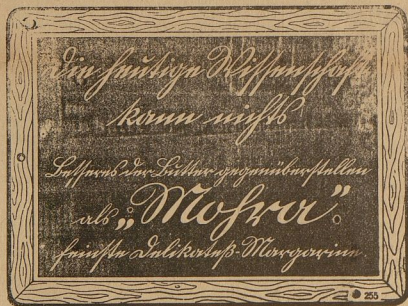 Die heutige Wissenschaft
kann nichts
Besseres der Butter gegenüberstellen
als „Mohra“
feinste Delikateß-Margarine
255